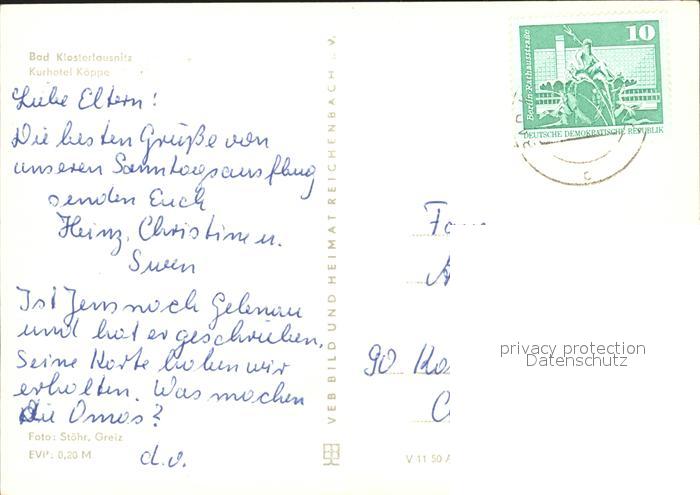 Bad Klosterlausnitz
Kurhotel Köppe
Liebe Eltern!
Die besten Grüße von
unseren Sonntagsausflug
senden Euch
Heinz, Christine u.
Swen
Ist Jens nach Gelenau
und hat er geschrieben.
Seine Karte haben wir
erhalten. Was machen
die Omas?
d.o.
Foto: Stöhr, Greiz
EVP: 0,20 M
VEB BILD UND HEIMAT REICHENBACH i. V.
V 11 50 A
10
Berlin · Rathausstraße
DEUTSCHE DEMOKRATISCHE REPUBLIK
c
90
privacy protection
Datenschutz